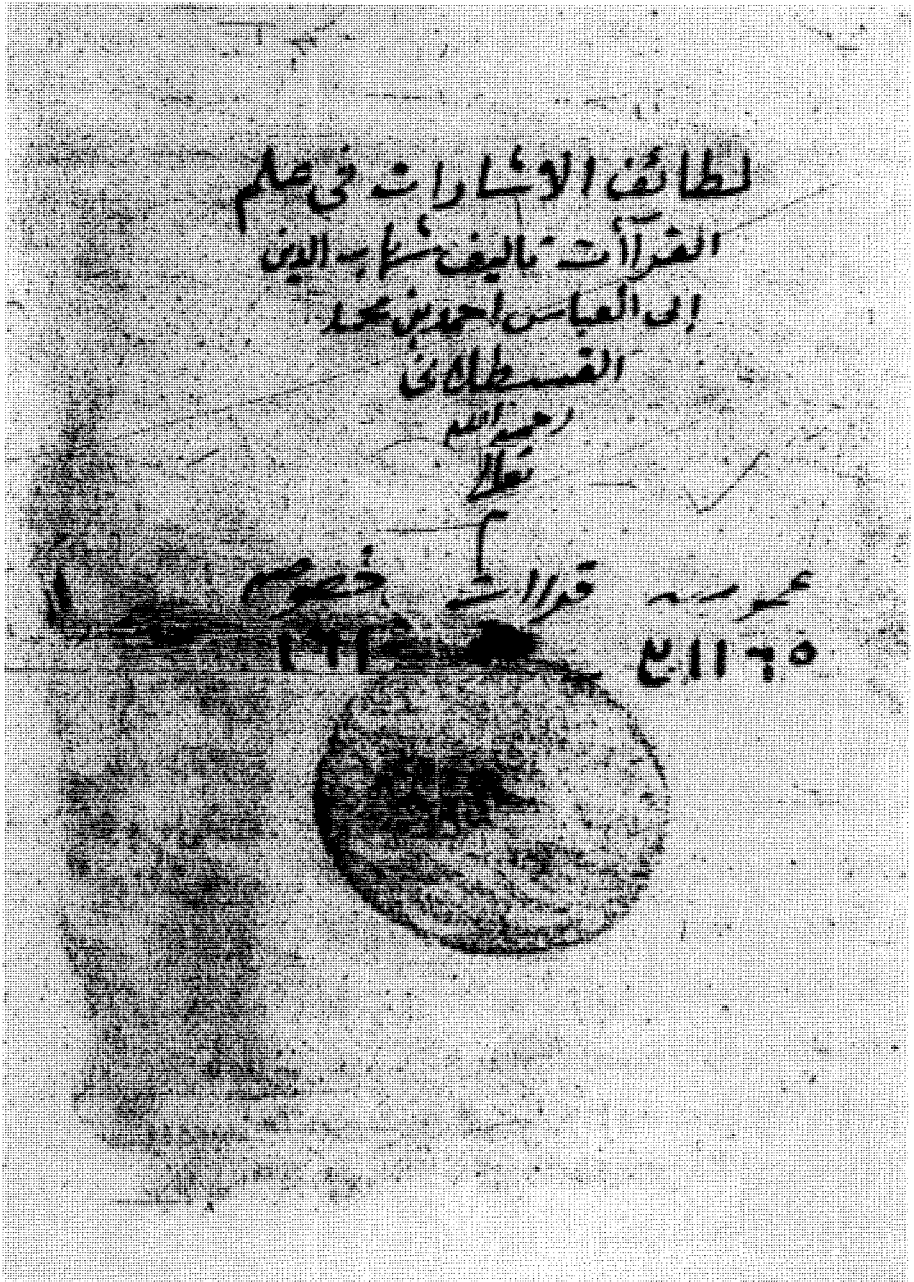 لطائف الاشارات في علم
القرآأت تاليف شهاب الدين
ابى العباس احمد بن محمد
القسطلانى
رحمه الله
تعالى
م
خصوصى قراات عمومية
١٦١